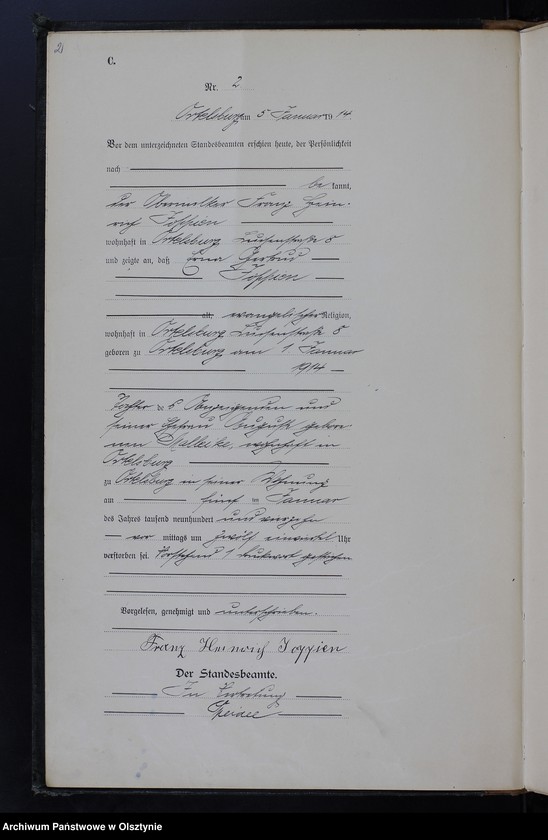 2
C.
Nr. 2
Ortelsburg am 5 Januar 1914
Vor dem unterzeichneten Standesbeamten erschien heute, der Persönlichkeit
nach
be kannt,
der Franz Hein-
rich Joppien
wohnhaft in Ortelsburg Luisenstraße 5
und zeigte an, daß Erna Gertrud
Joppien
alt, evangelischer Religion,
wohnhaft in Ortelsburg Luisenstraße 5
geboren zu Ortelsburg am 1. Januar
1914
Tochter des Anzeigenden und
seiner Ehefrau Auguste gebor
nen wohnhaft in
Ortelsburg
zu Ortelsburg in seiner Wohnung
am fünf ten Januar
des Jahres tausend neunhundert und vierzehn
vor mittags um zwölf einviertel Uhr
verstorben sei. Vorstehend 1 Druckwort gestrichen
Vorgelesen, genehmigt und unterschrieben.
Franz Heinrich Joppien
Der Standesbeamte.
In Vertretung
Archiwum Państwowe w Olsztynie